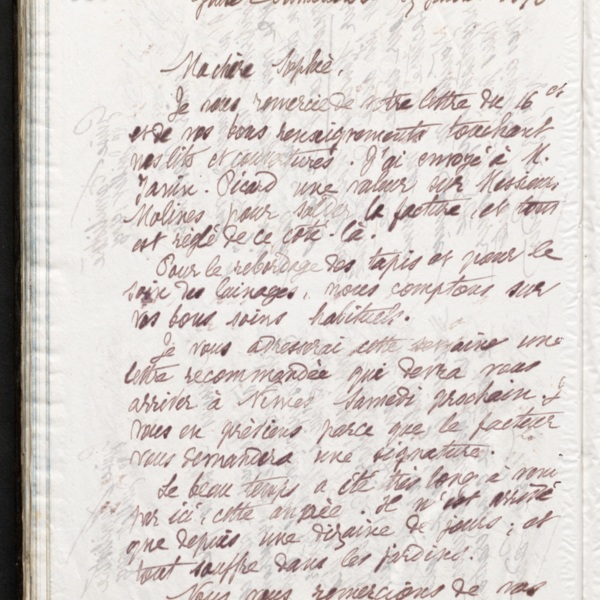 Ma chère Sophie,
Je vous remercie de votre lettre du 16 ct
et de vos bons renseignements touchant
nos lits et couvertures. J'ai envoyé à M.
Janin-Picard une valeur sur Messieurs
Molines pour solder la facture, et tout
est réglé de ce côté-là.
Pour le rebordage des tapis et pour le
soin des lainages, nous comptons sur
vos bons soins habituels.
Je vous adresserai cette semaine une
lettre recommandée qui devra vous
arriver à Nimes Samedi prochain. Je
vous en préviens parce que le facteur
vous demandera une signature.
Le beau temps a été très long à venir
par ici, cette année. Il n'est arrivé
que depuis une dizaine de jours, et
tout souffre dans les jardins.
Nous vous remercions de vos